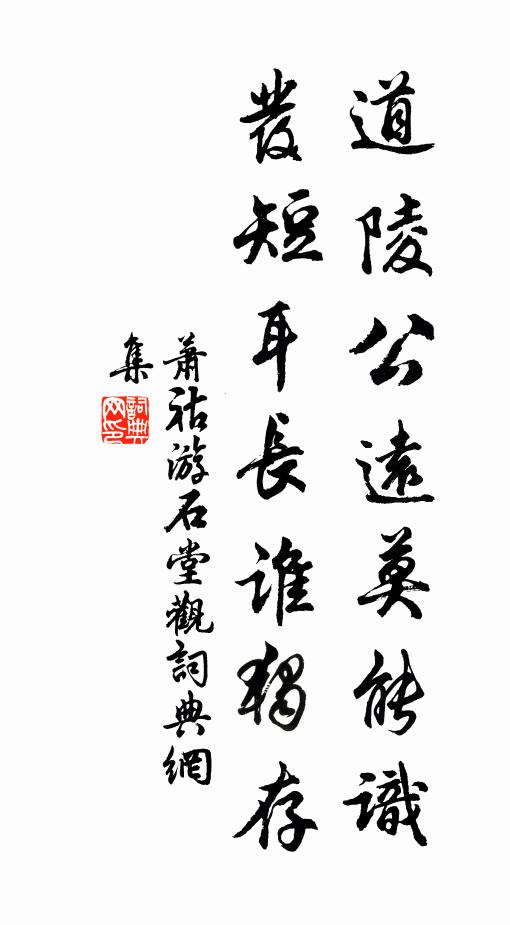 道陵公遠莫能識
發短耳長誰獨存
蕭祜游石堂觀詞典網
集
詞典網印